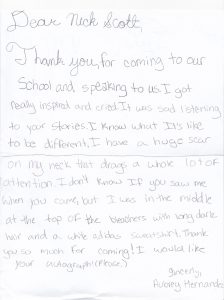 Dear Nick Scott,
Thank you, for coming to our
School and speaking to us. I got
really inspired and cried. It was sad listening
to your stories. I know what It's like
to be different, I have a huge scar
on my neck that drags a whole lot of
attention. I don't know If you saw me
when you came, but I was in the middle
at the top of the bleachers with long dark
hair and a white adidas sweatshirt. Thank
you so much for coming! I would like
your autograph! (Please.)
Sincerly,
Aubrey Hernande